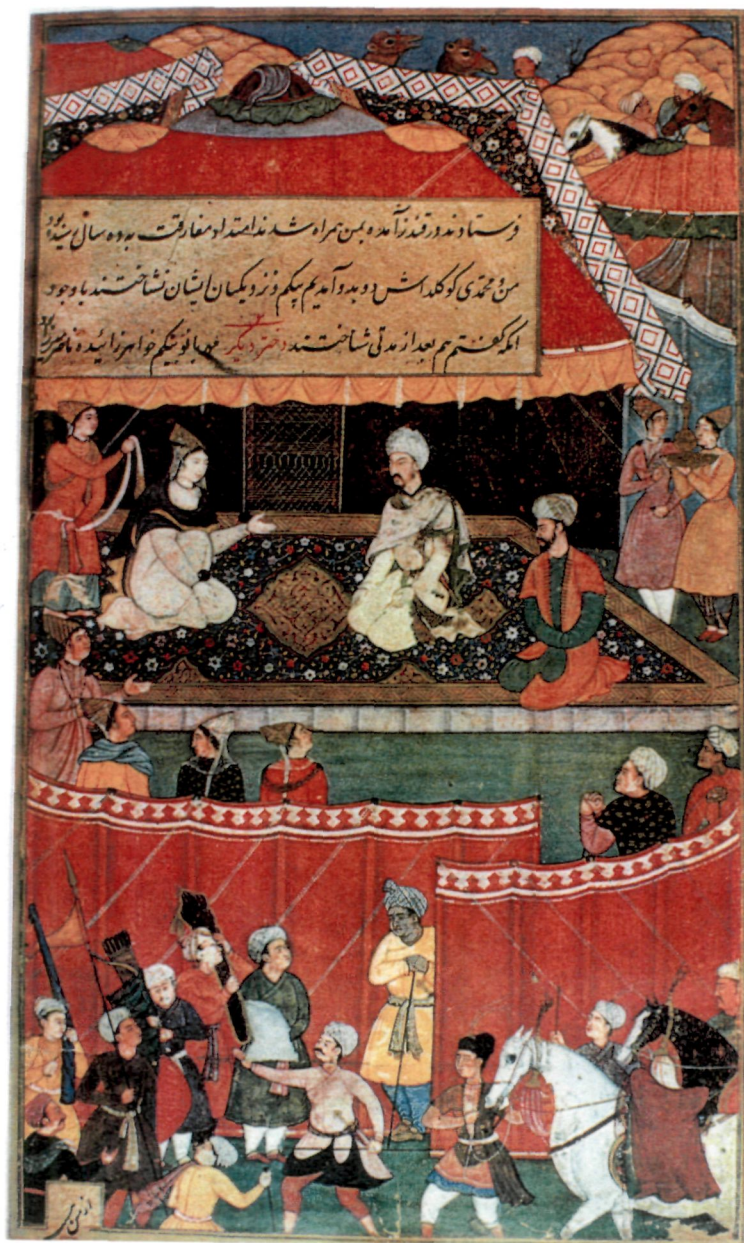 فرستادند در قندز آمده بمن همراه شدند امتداد مفارقت به ده سال کشیده بود
من و محمدی کوکلداش دو بدو آمدیم بیکم و نزدیکان ایشان نشناختند با وجود
انکه گفتم هم بعد از مدتی شناختند دختر دیگر مهربانو بیکم خواهر زائیده ناصر میرزا